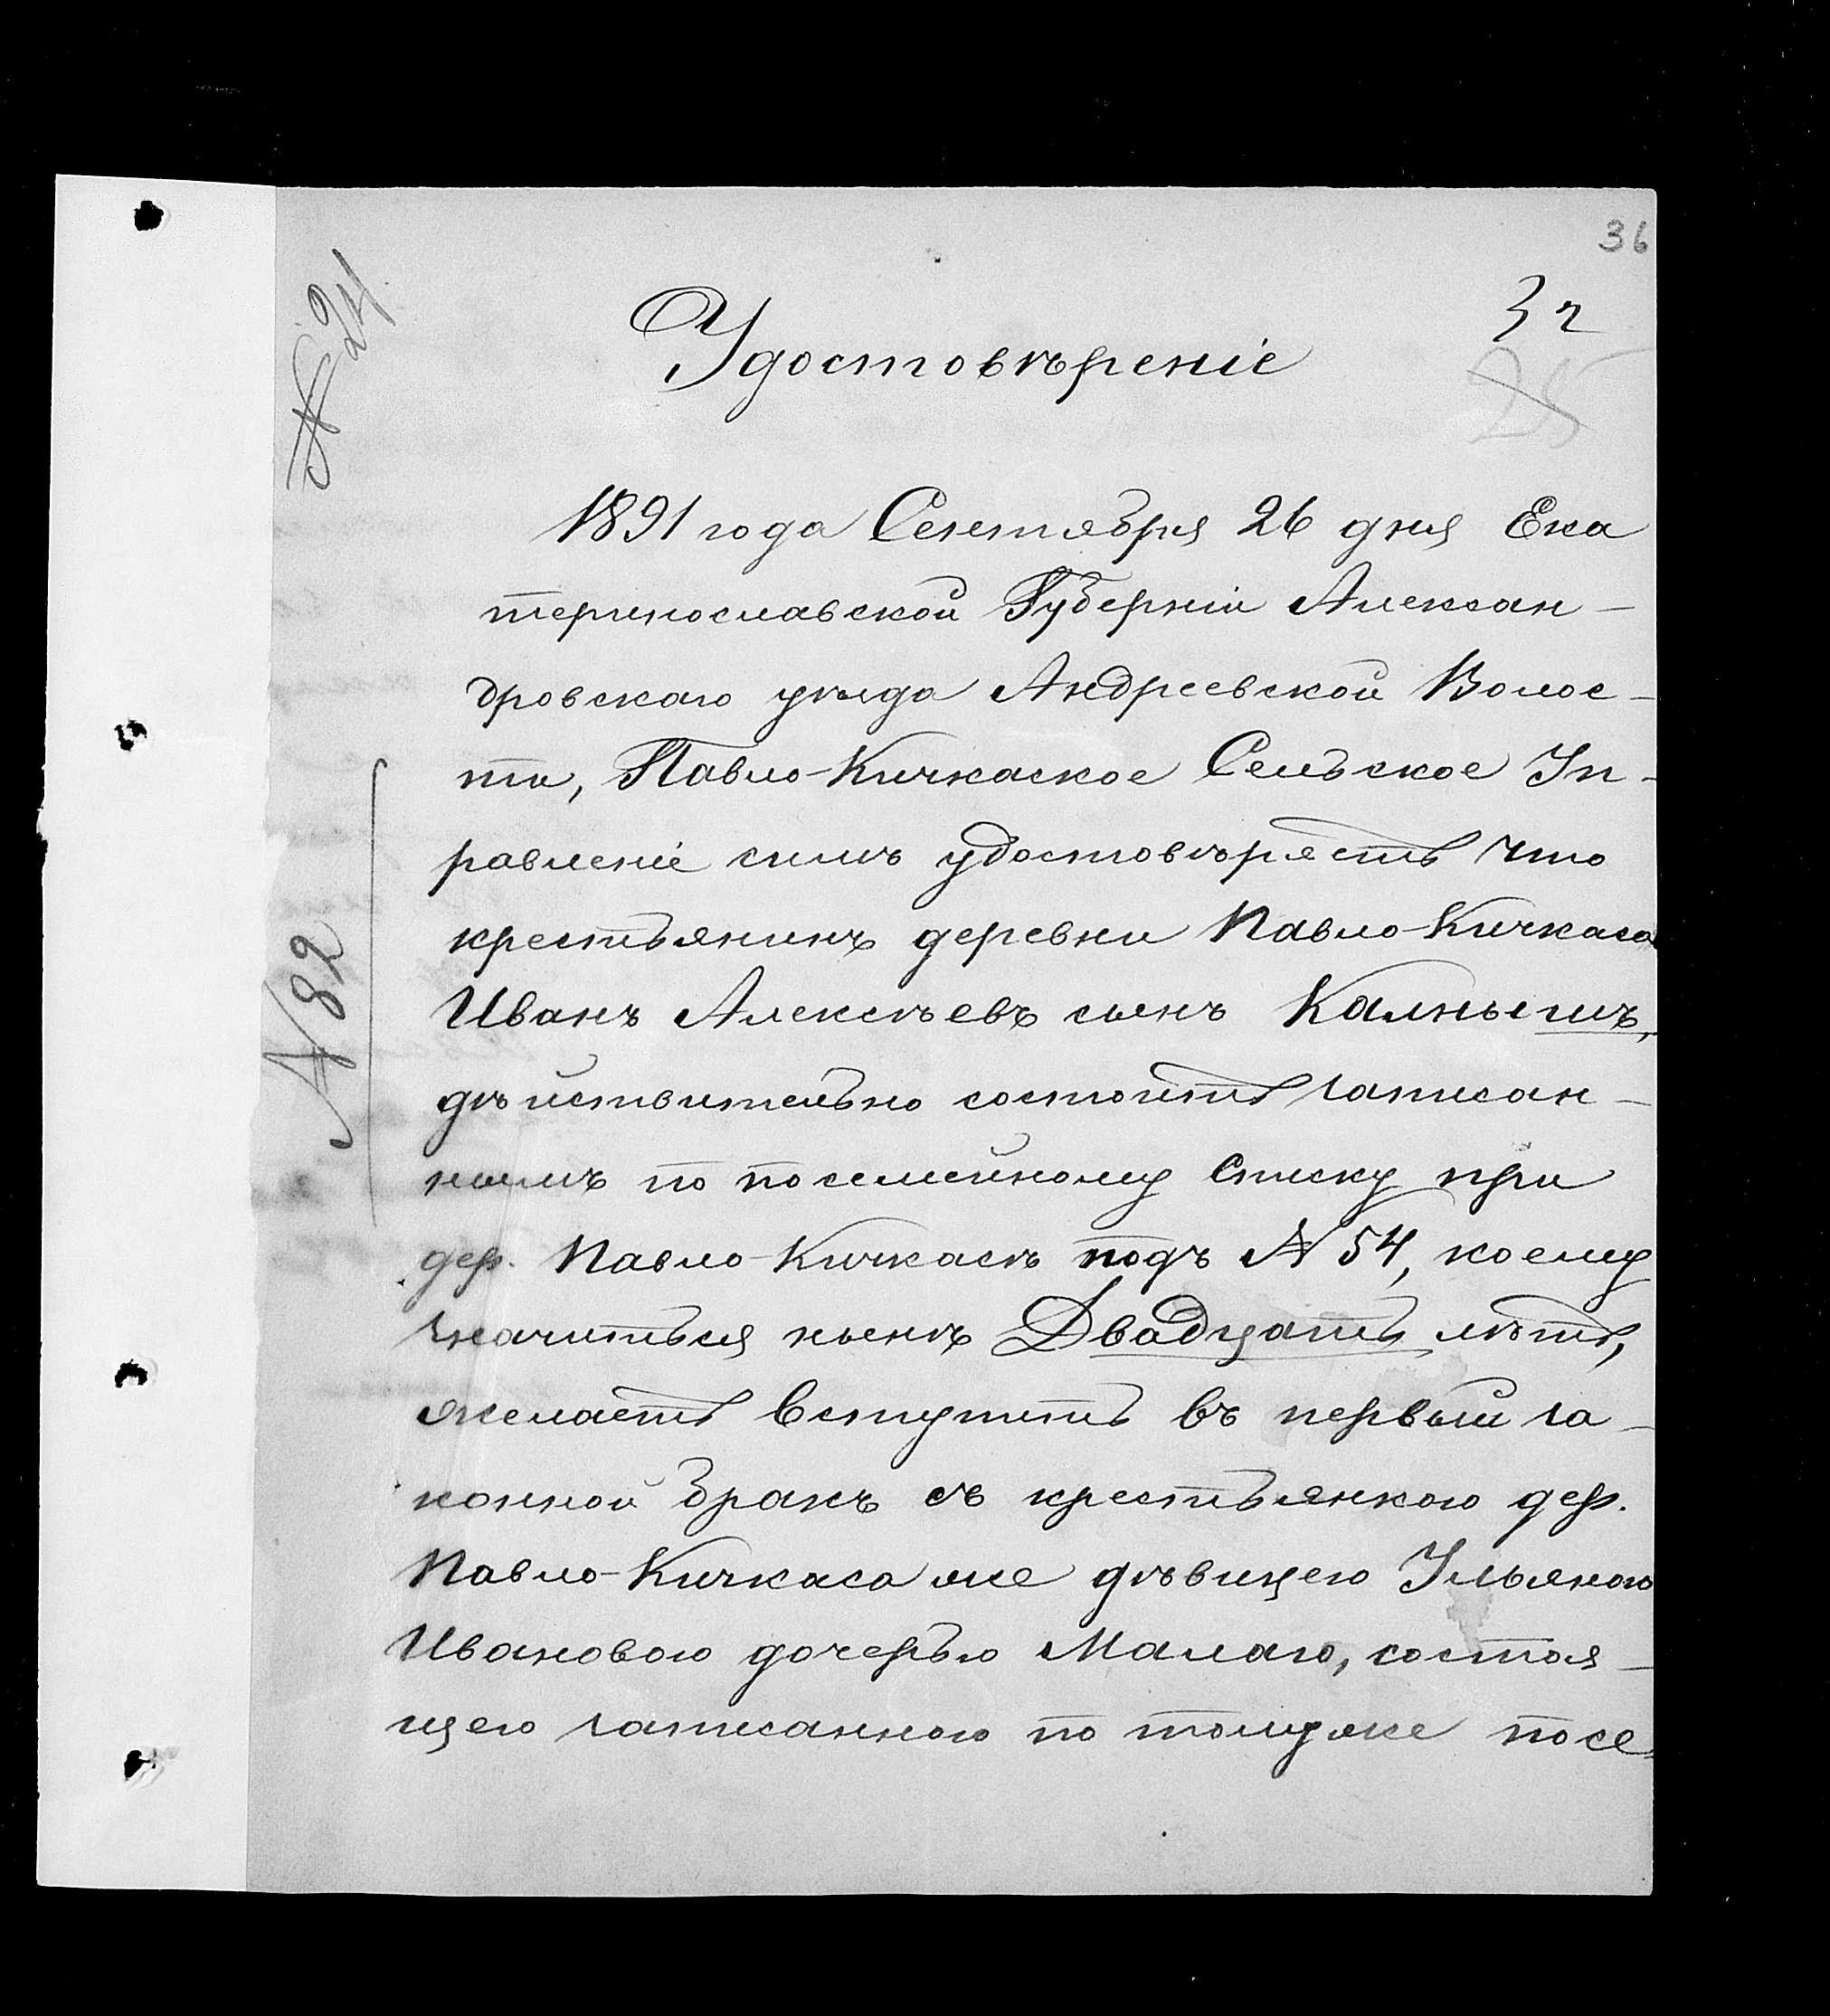 36
№ 24
32
25
Удостовѣреніе
1891 года Сентября 26 дня Ека
теринославской Губерніи Алексан-
дровскаго уѣзда Андреевской Волос-
ти, Павло-Кичкаское Сельское Уп-
равленіе симъ удостовѣряетъ что
крестьянинъ деревни Павло-Кичкаса
Иванъ Алексѣевъ сынъ Калнышъ,
дѣйствительно состоитъ записан-
нымъ по посемейному списку при
дер. Павло-Кичкасѣ подъ № 54, коему
значиться нынѣ Двадцать лѣтъ,
желаетъ вступить въ первый за-
конной бракъ съ крестьянкою дер.
Павло-Кичкаса же дѣвицею Ульяною
Ивановою дочерью Малаго, состоя-
щею записанною по томуже посе-
№ 82